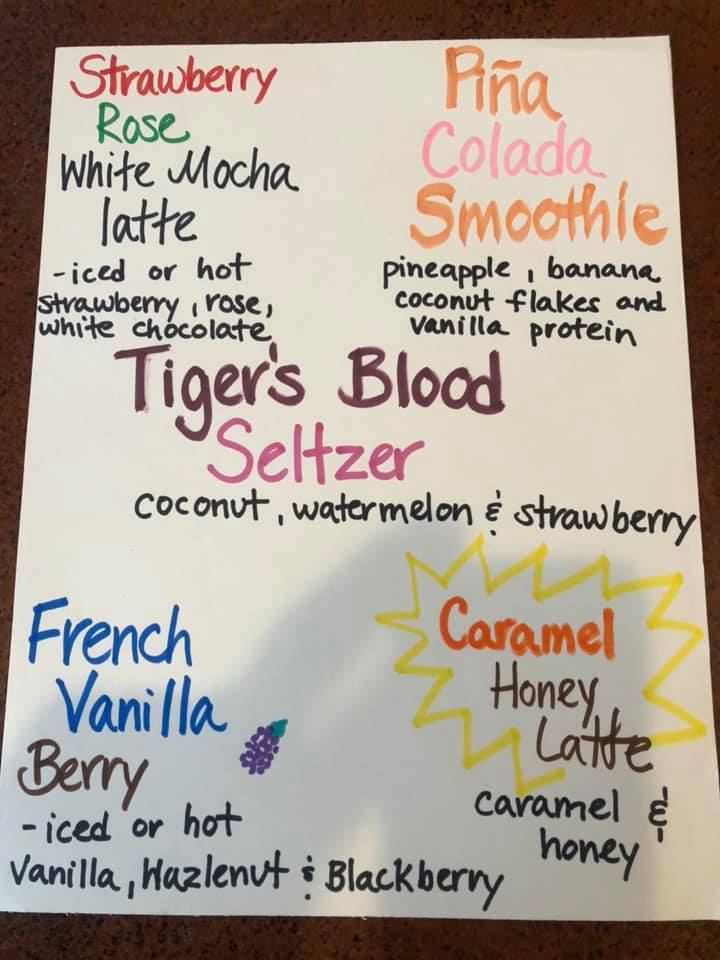 Strawberry
Rose
White Mocha
latte
-iced or hot
strawberry, rose,
white chocolate
Piña
Colada
Smoothie
pineapple, banana
coconut flakes and
vanilla protein
Tiger's Blood
Seltzer
coconut, watermelon & strawberry
French
Vanilla
Berry
-iced or hot
Vanilla, Hazlenut & Blackberry
Caramel
Honey
Latte
caramel &
honey